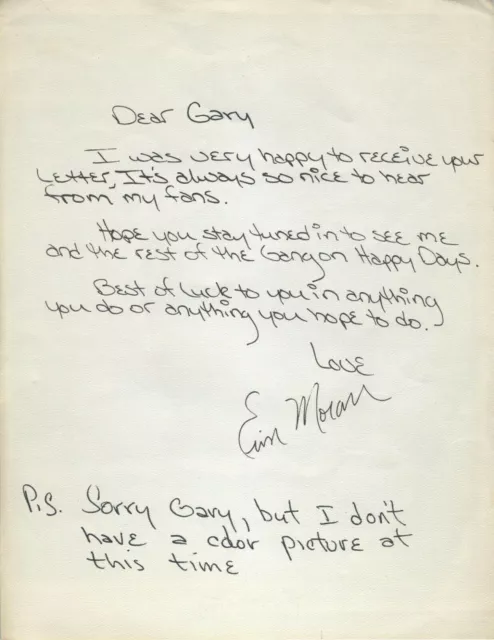 Dear Gary
I was very happy to receive your
Letter, It's always so nice to hear
from my fans.
Hope you stay tuned in to see me
and the rest of the Gang on Happy Days.
Best of luck to you in anything
you do or anything you hope to do.
Love
Erin Moran
P.S. Sorry Gary, but I don't
have a color picture at
this time